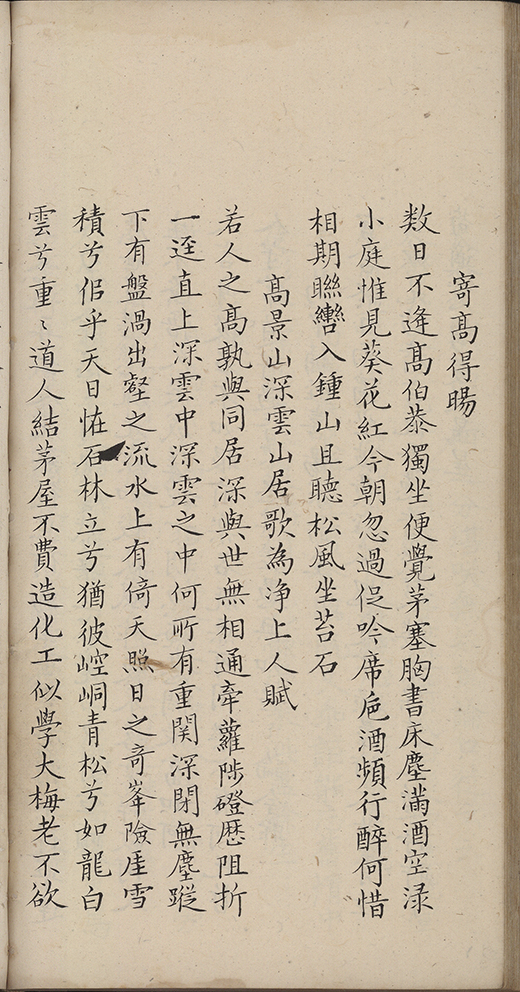 寄高得暘
数日不逢高伯恭獨坐便覺茅塞胸書床塵滿酒空渌
小庭惟見葵花紅今朝忽過促吟席巵酒頻行醉何惜
相期聯轡入鍾山且聽松風坐苔石
高景山深雲山居歌為淨上人賦
若人之高孰與同居深與世無相通牽蘿陟磴歷阻折
一逕直上深雲中深雲之中何所有重関深閉無塵蹤
下有盤渦出壑之流水上有倚天照日之奇峯險厓雪
積兮侶乎天日恠石林立兮猶彼崆峒青松兮如龍白
雲兮重〻道人結茅屋不費造化工似學大梅老不欲